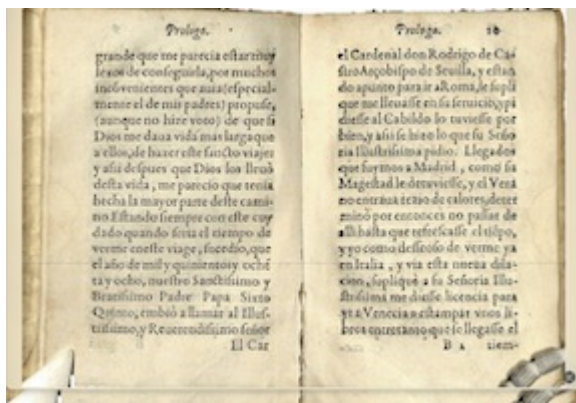 Prologo.
grande que me parecia estar muy
lexos de conseguida, por muchos
inconvenientes que auia (especial-
mente el de mis padres) propuse,
(aunque no hize voto) de que si
Dios me daua vida mas larga que
a ellos, de hazer este sancto viaje:
y assi despues que Dios los lleuò
desta vida, me parecio que tenia
hecha la mayor parte deste cami-
no. Estando siempre con este cuy
dado quando seria el tiempo de
verme en este viage, sucedio, que
el año de mil y quinientos y oche
ta y ocho, nuestro Sanctissimo y
Beatissimo Padre Papa Sixto
Quinto, embiò a llamar al Illus-
trissimo, y Reuerendissimo señor
El Car
Prologo. 10
el Cardenal don Rodrigo de Ca-
stro Arçobispo de Seuilla, y estan
do apunto para ir a Roma, le supli
que me lleuasse en su seruicio, y pi
diesse al Cabildo lo tuuiesse por
bien, y assi se hizo lo que su Seño
ria Illustrissima pidio. Llegados
que fuymos a Madrid, como su
Magestad le detuuiesse, y el Vera
no entraua rezio de calores, deter
minò por entonces no passar de
alli hasta que refrescasse el tiẽpo,
y yo como desseoso de verme ya
en Italia, y via esta nueua dila-
cion, supliquè a su Señoria Illu-
strissima me diesse licencia para
yr a Venecia a estampar vnos li-
bros entretanto que se llegasse el
B 2 tiem-